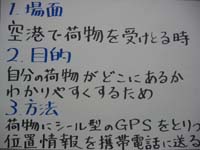 1.場面
空港で荷物を受けとる時
2.目的
自分の荷物がどこにあるか
わかりやすくするため
3.方法
荷物にシール型のGPSをとりつ
位置情報を携帯電話に送る